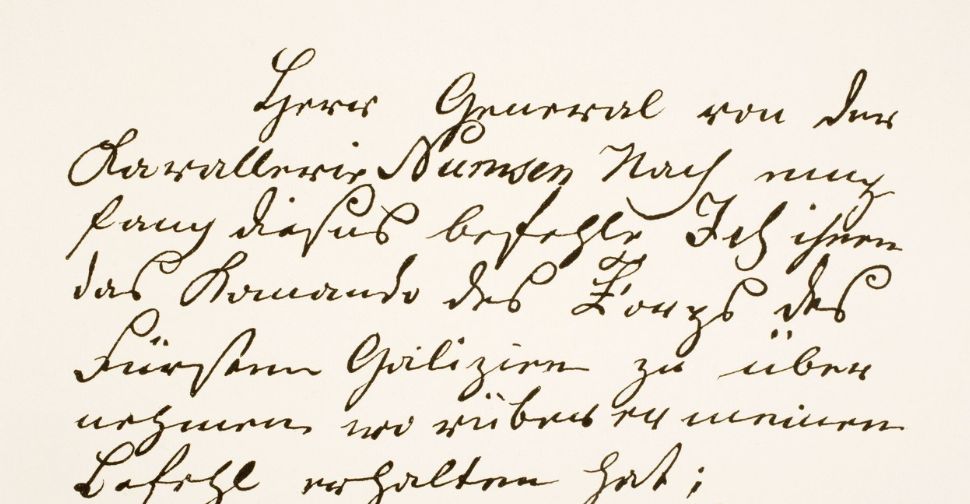 Herr General von der
Kavallerie Numsen Nach emp
fang dieses befehle Ich ihnen
das Komando des Korps des
Fürsten Galizien zu über
nehmen wo rüber er meinen
Befehl erhalten hat;